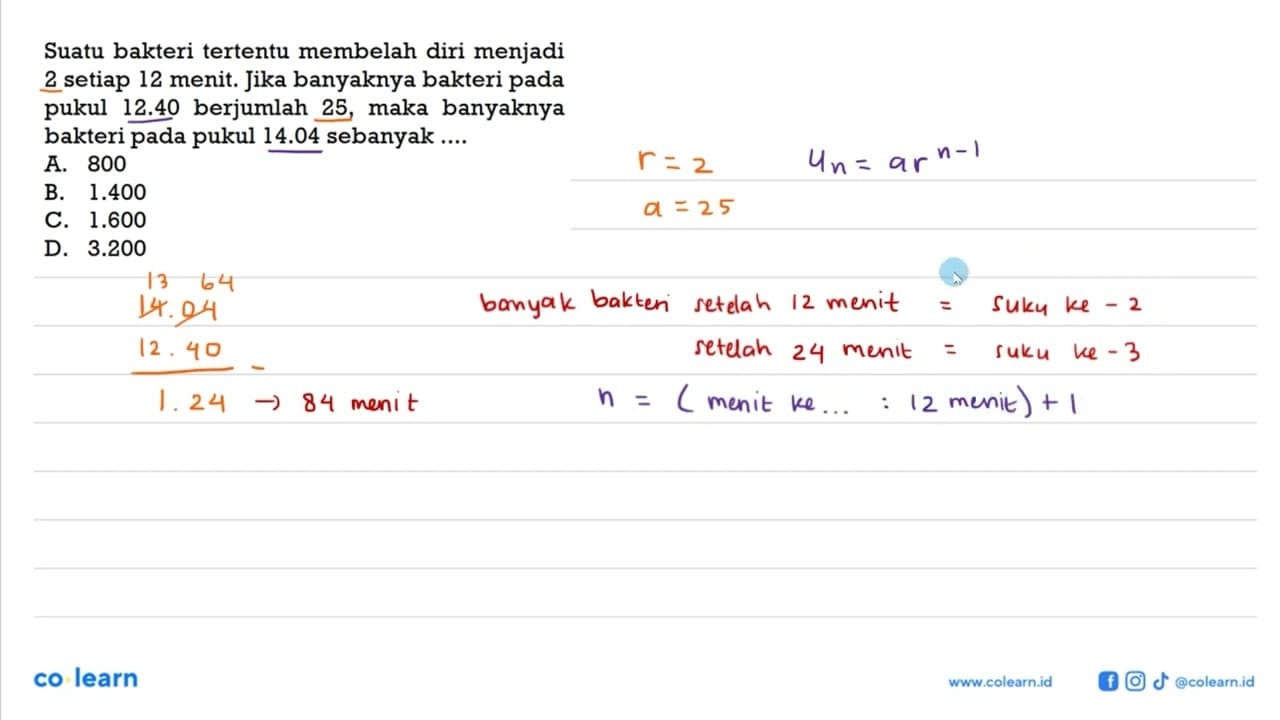 Suatu bakteri tertentu membelah diri menjadi
2 setiap 12 menit. Jika banyaknya bakteri pada
pukul 12.40 berjumlah 25, maka banyaknya
bakteri pada pukul 14.04 sebanyak ....
A. 800
B. 1.400
C. 1.600
D. 3.200
r = 2
a = 25
Un = ar^n-1
13 64
14.04
12.40 -
1.24 → 84 menit
banyak bakteri setelah 12 menit = suku ke - 2
setelah 24 menit = suku ke - 3
n = ( menit ke... : 12 menit) + 1
co learn
www.colearn.id
@colearn.id